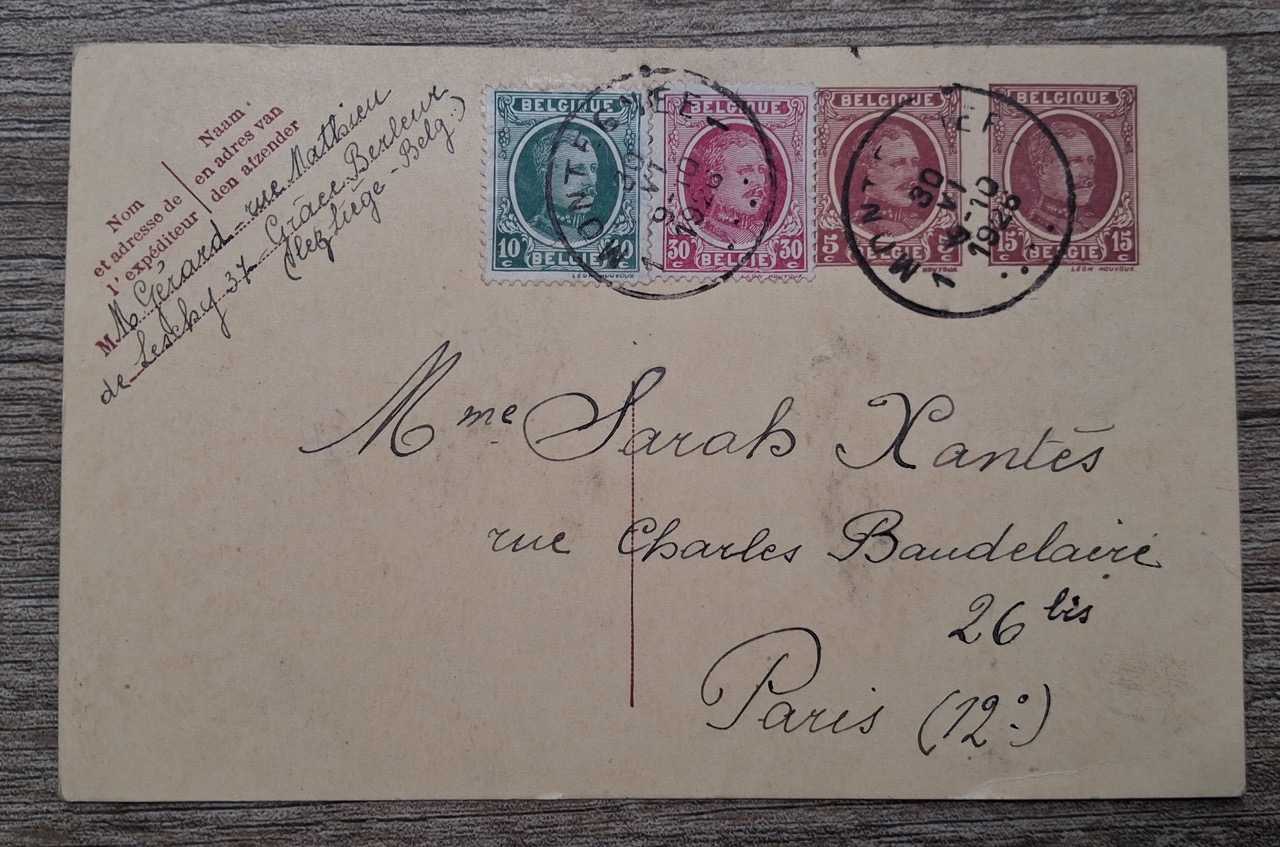 Nom
et adresse de
l'expéditeur
Naam
en adres van
den afzender
M. Gérard rue Mathieu
de Lexhy 37 Grâce Berleur
(lez Liège - Belg.)
BELGIQUE
10 c 10 c
BELGIË
LÉON HOUYOUX
BELGIQUE
30 c 30 c
BELGIË
LÉON HOUYOUX
BELGIQUE
5 c
BELGIË
HOUYOUX
BELGIQUE
15 c 15 c
BELGIË
LÉON HOUYOUX
MONTEGNEE 1
30
VI
9-10
1926
1
MONT EE
30
VI
9-10
1926
1
Mme Sarah Xantès
rue Charles Baudelaire
26 bis
Paris (12e)